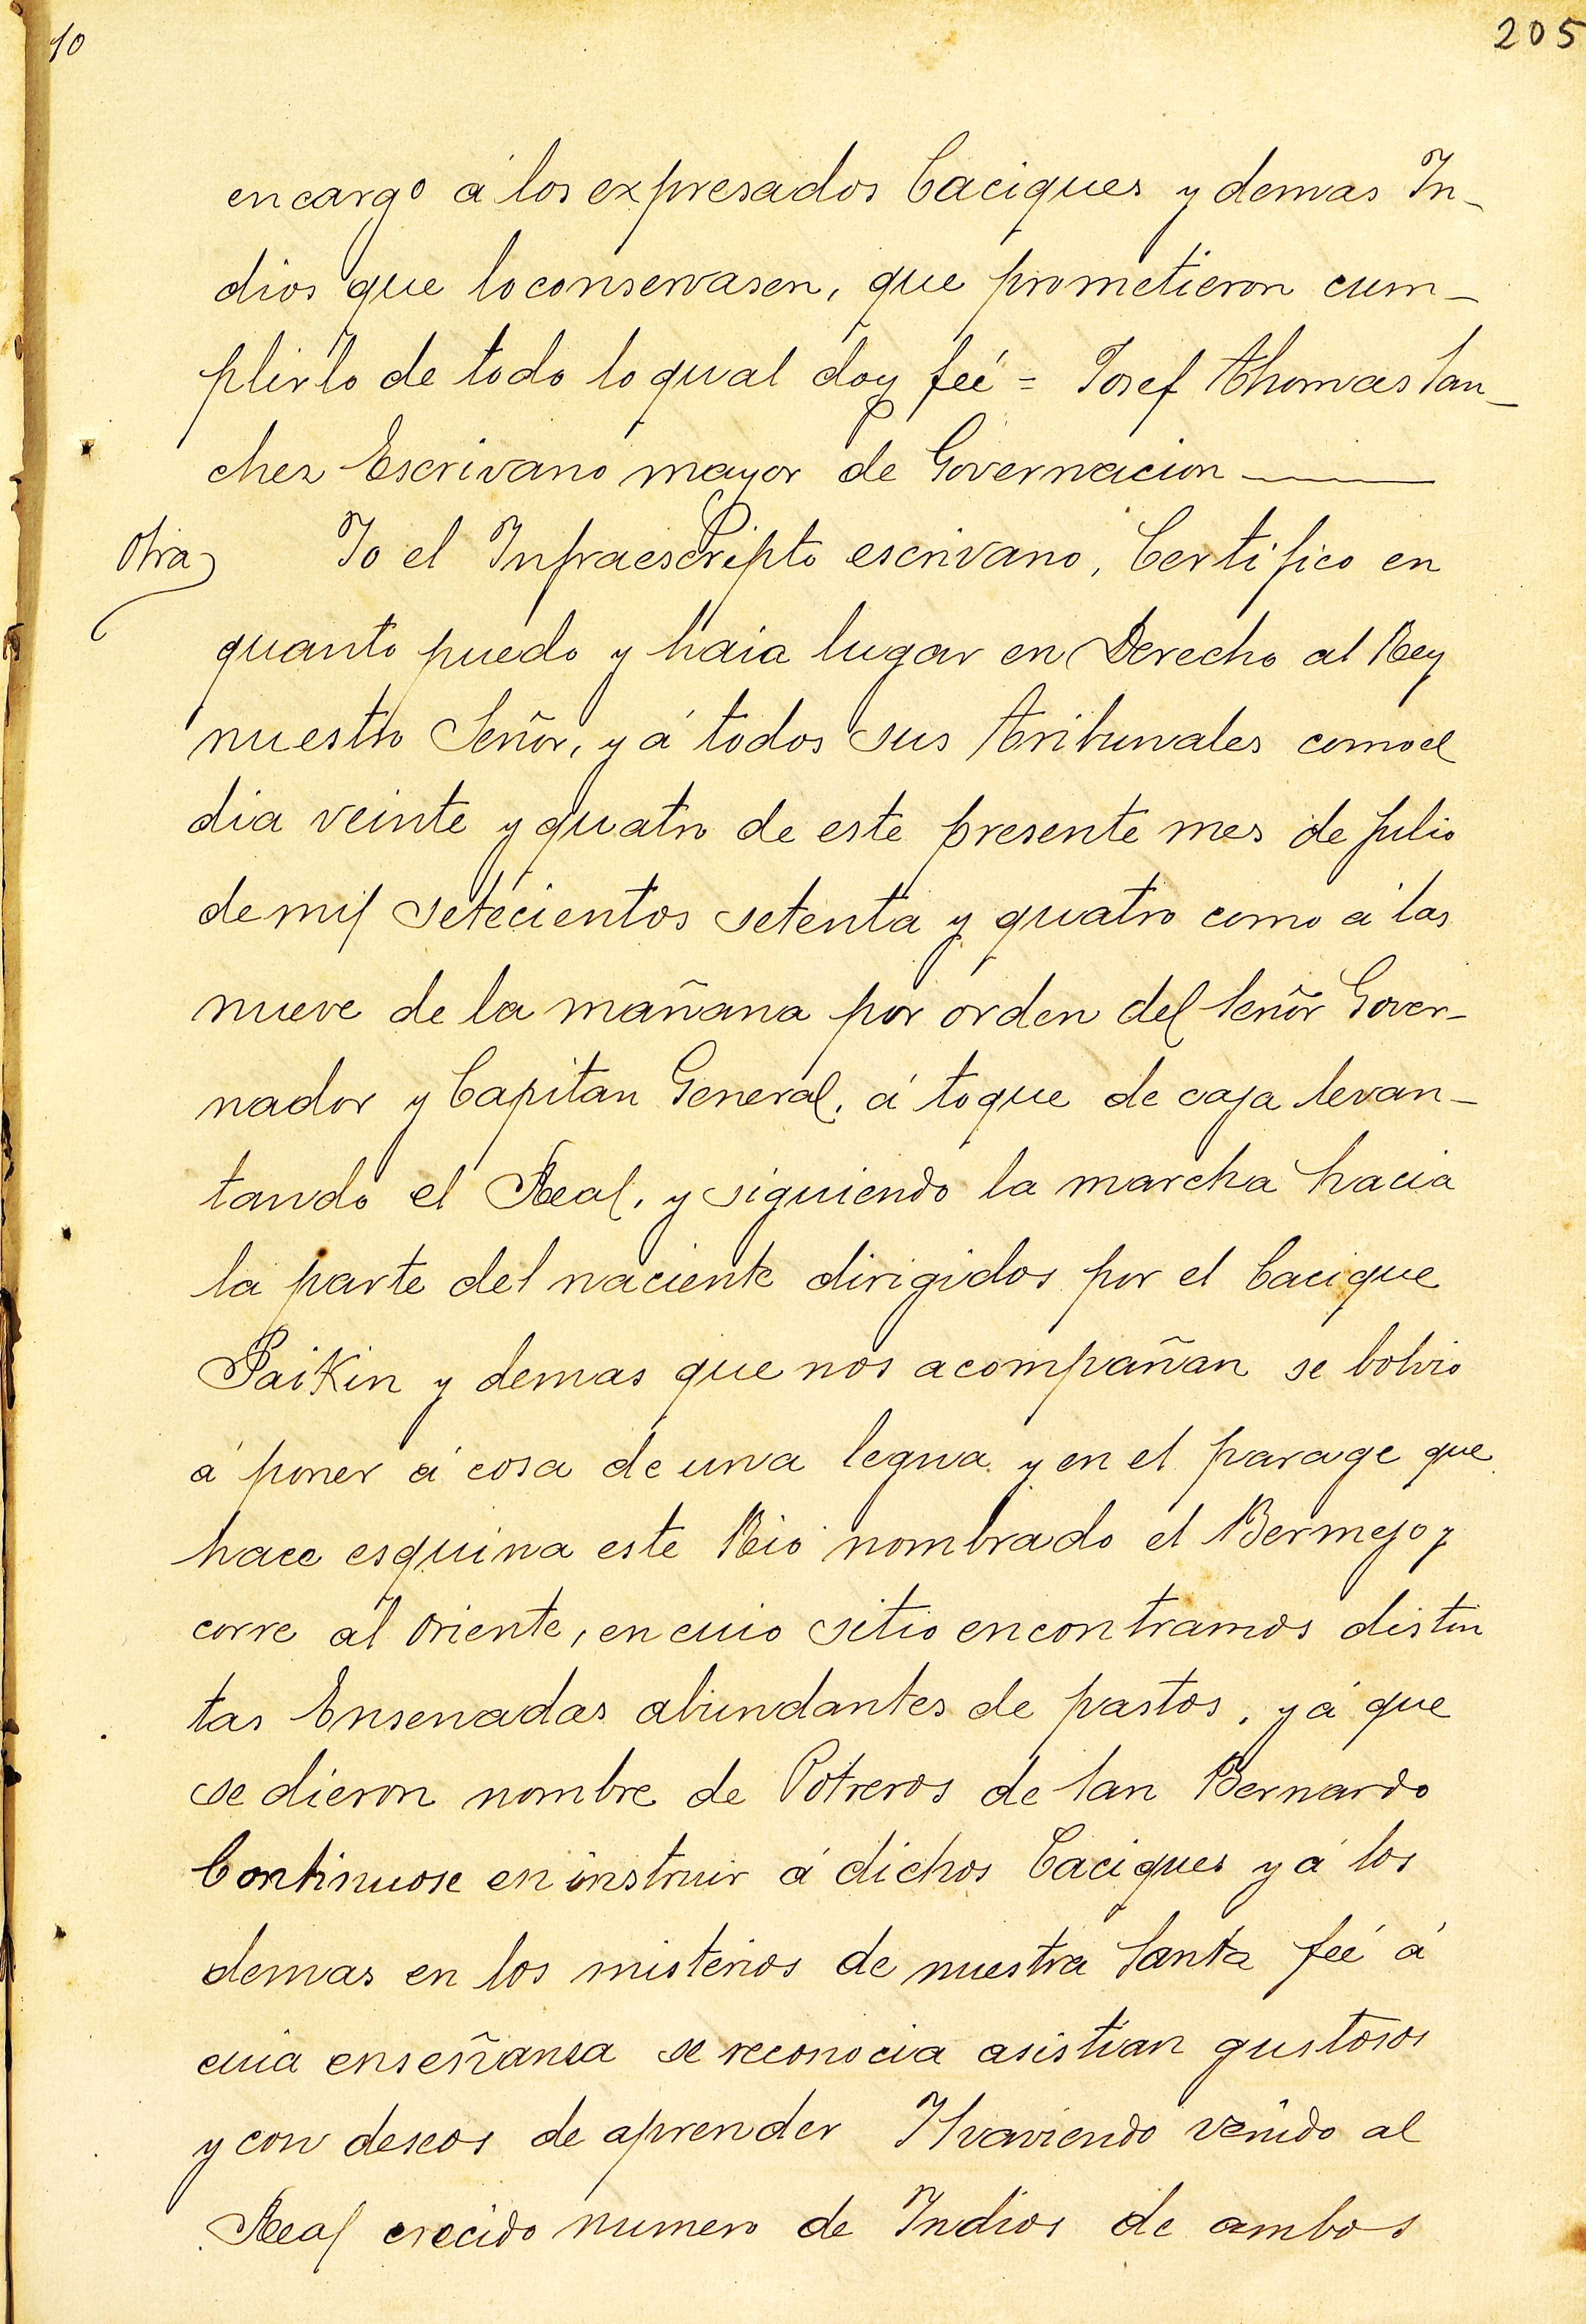 10
205
encargo á los expresados Caciques y demas In-
dios que lo conservasen, que prometieron cum-
plirlo de todo lo qual doy feé = Josef Thomas San-
chez Escrivano mayor de Governacion
Otra
Yo el Infraescripto escrivano, Certifico en
quanto puedo y haia lugar en Derecho al Rey
nuestro Señor, y á todos sus Tribunales como el
dia veinte y quatro de este presente mes de Julio
de mil setecientos setenta y quatro como á las
nueve de la mañana por orden del Señor Gover-
nador y Capitan General, á toque de caja levan-
tando el Real, y siguiendo la marcha hacia
la parte del naciente dirigidos por el Cacique
Paikin y demas que nos acompañan se bolvio
á poner á cosa de una legua y en el parage que
hace esquina este Rio nombrado el Bermejo y
corre al oriente, en cuio sitio encontramos distin
tas Ensenadas abundantes de pastos, y á que
se dieron nombre de Potreros de San Bernardo
Continuose en instruir á dichos Caciques y á los
demas en los misterios de nuestra Santa feé á
cuia enseñanza se reconocia asistian gustosos
y con deseos de aprender Y haviendo venido al
Real crecido numero de Indios de ambos